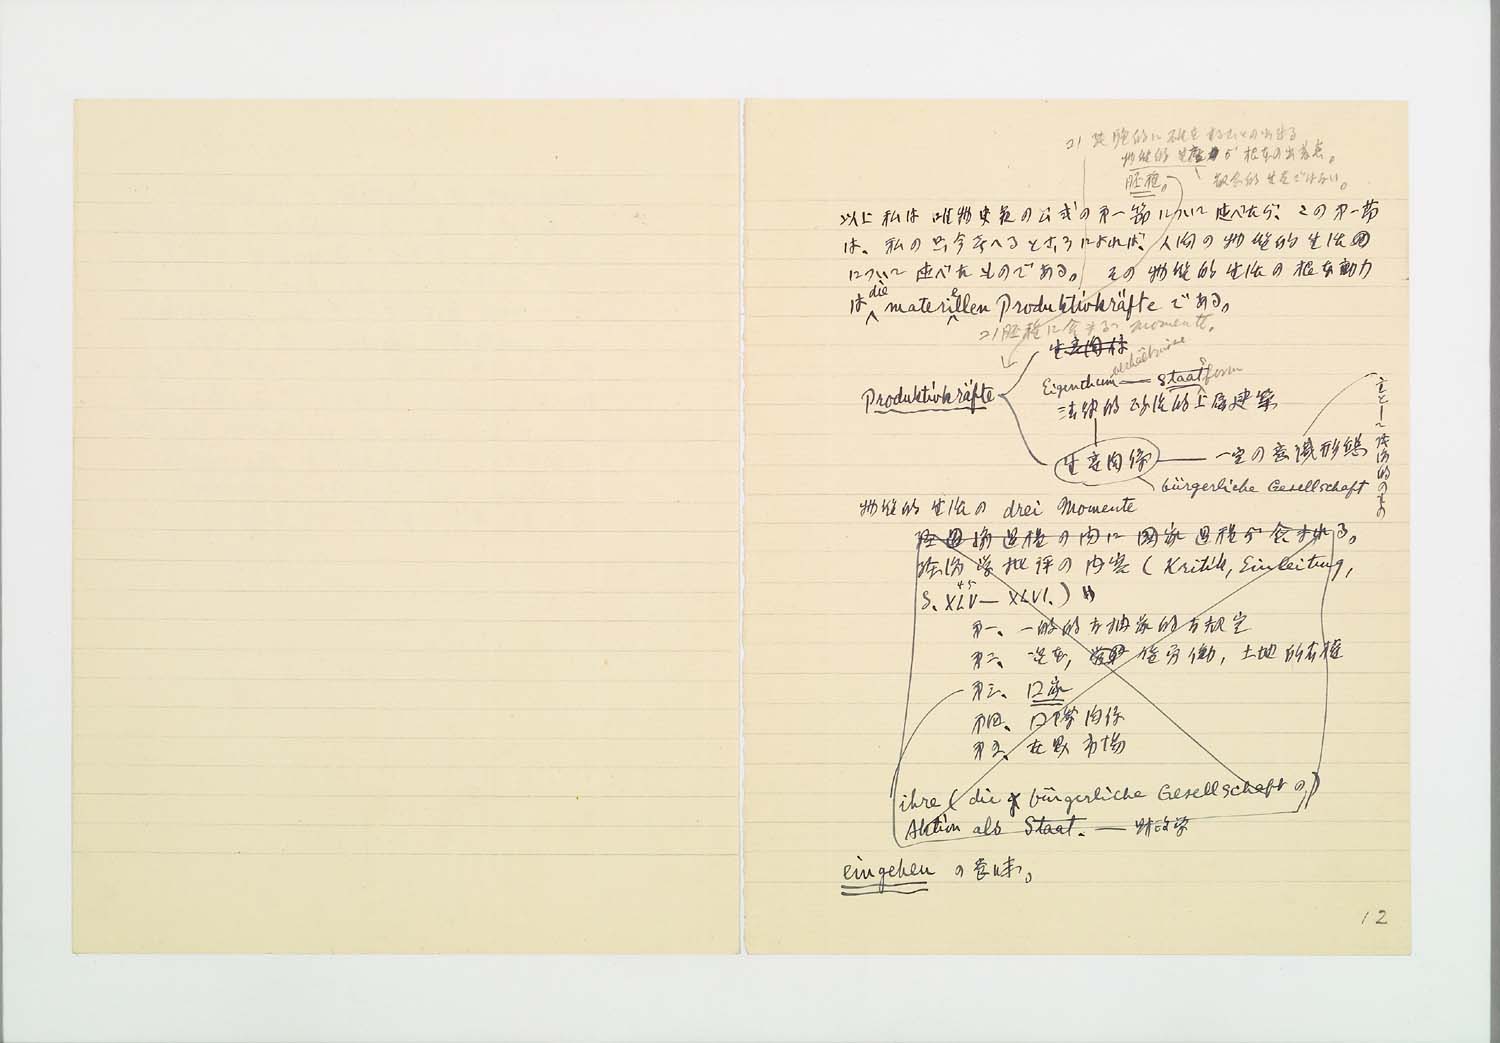 物質的生産が根本の出発点。
胚種。
以上私は唯物史観の公式の第一節について述べたが、この第一節
は、私の只今考へるところによれば、人間の物質的生活
について述べたものである。 その物質的生活の根本動力
は die materiellen Produktivkräfte である。
胚種に含まるゝ Momente。
生産関係
Eigenthumverhältnisse — Staatsform
Produktivkräfte
法律的政治的上層建築
生産関係 — 一定の意識形態
bürgerliche Gesellschaft
主として経済的のもの
物質的生活の drei Momente
過程の内に国家過程が含まれる。
経済学批評の内容 ( Kritik, Einleitung,
S. XLV — XLVI. ) 45
第一、一般的な抽象的な規定
第二、資本, 賃労働, 土地所有権
第三、国家
第四、国際関係
第五、世界市場
ihre ( die bürgerliche Gesellschaft の )
Aktion als Staat. — 財政学
eingehen の意味。
12